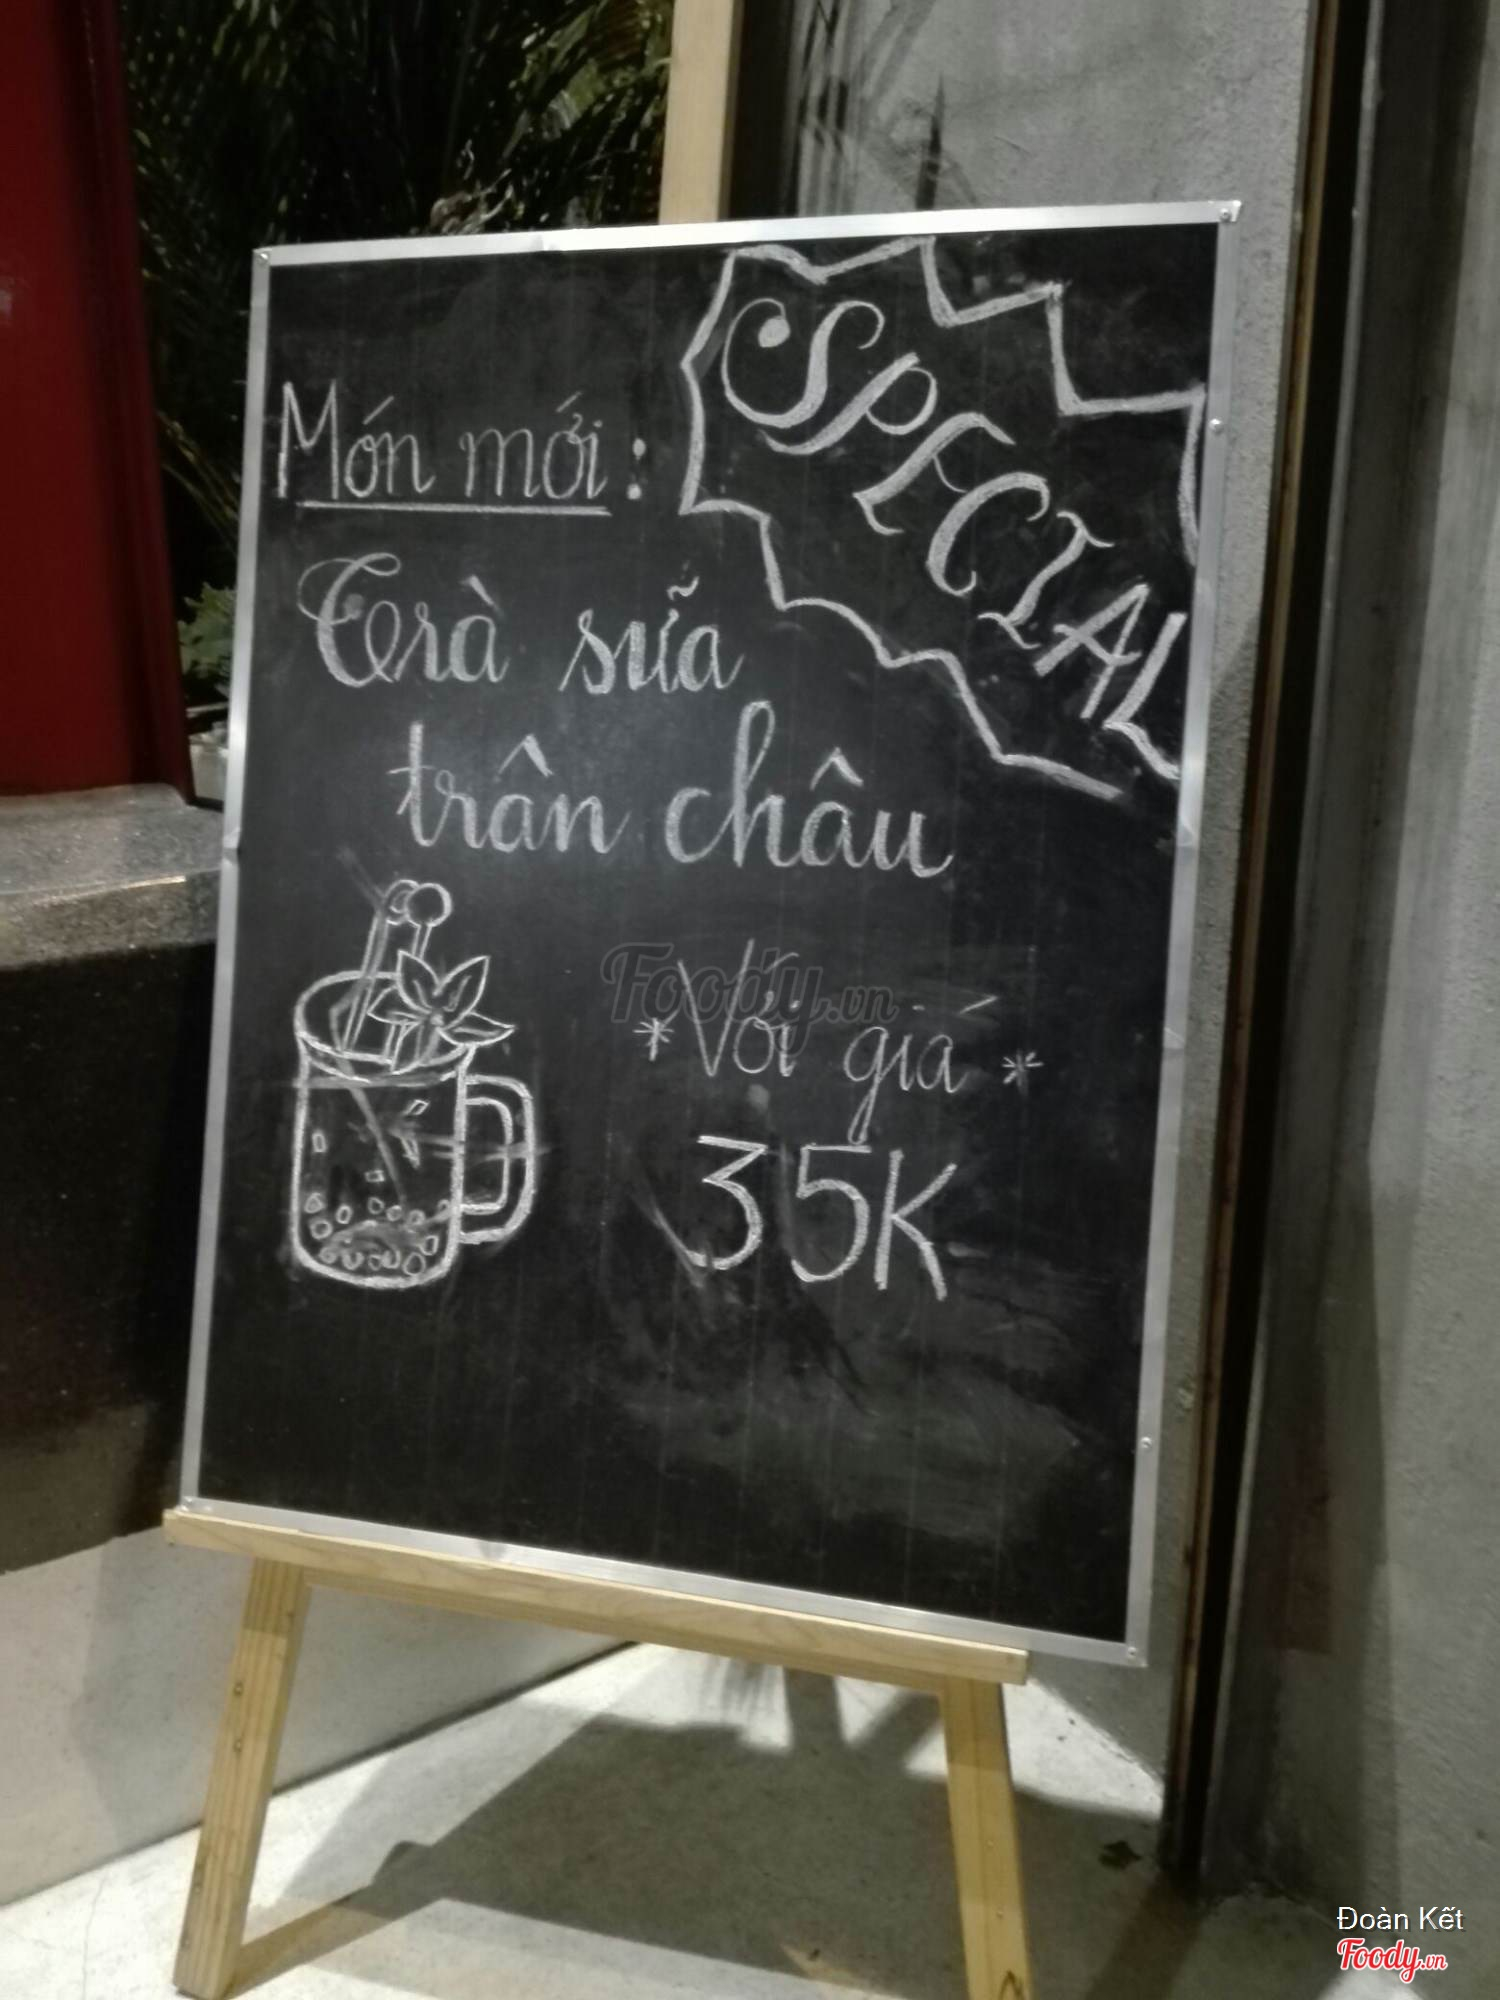 SPECIAL
Món mới :
Trà sữa
trân châu
Foody.vn
*Với giá*
35K
Đoàn Kết
Foody.vn